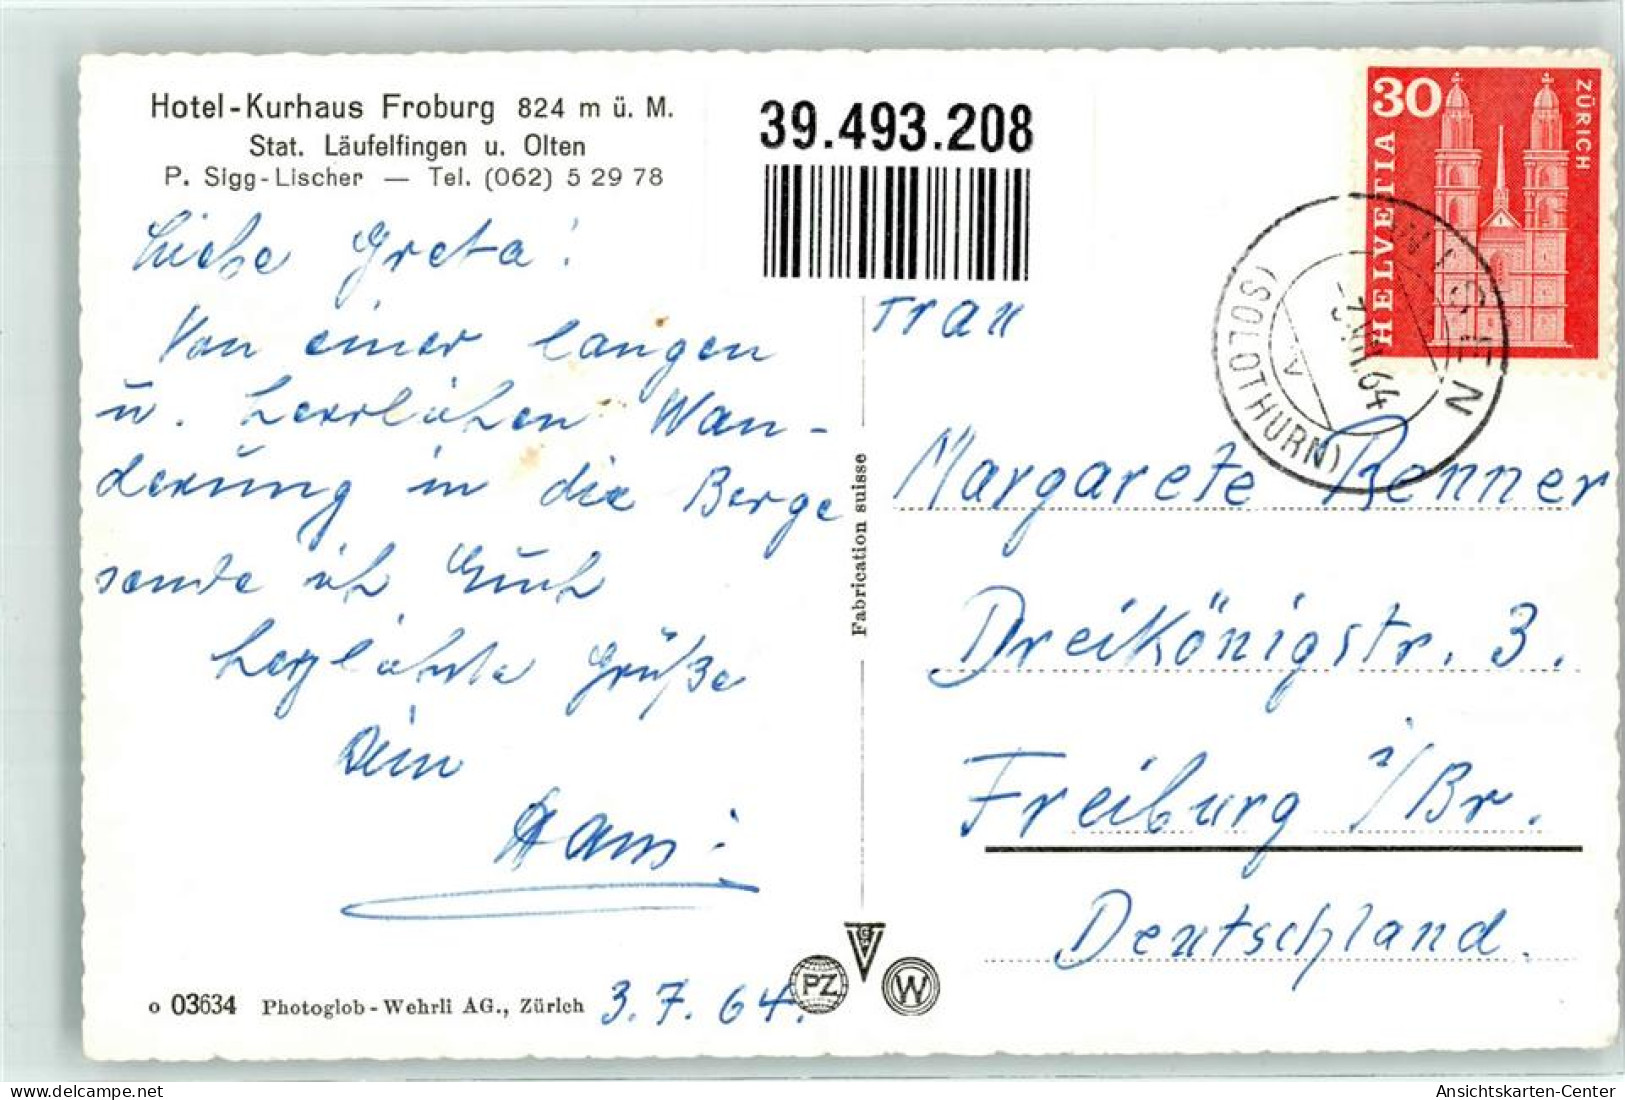 Hotel-Kurhaus Froburg 824 m ü. M.
Stat. Läufelfingen u. Olten
P. Sigg-Lischer — Tel. (062) 5 29 78
39.493.208
Liebe Greta!
Von einer langen
u. herrlichen Wan-
derung in die Berge
sende ich Euch
herzlichste Grüße
Dein
Hans
3.7.64.
o 03634 Photoglob-Wehrli AG., Zürich
Fabrication suisse
VGP
PZ
W
30
HELVETIA
ZÜRICH
(SOLOTHURN)
64
A
Frau
Margarete Renner
Dreikönigstr. 3.
Freiburg i/Br.
Deutschland.
delcampe.net
Ansichtskarten-Center